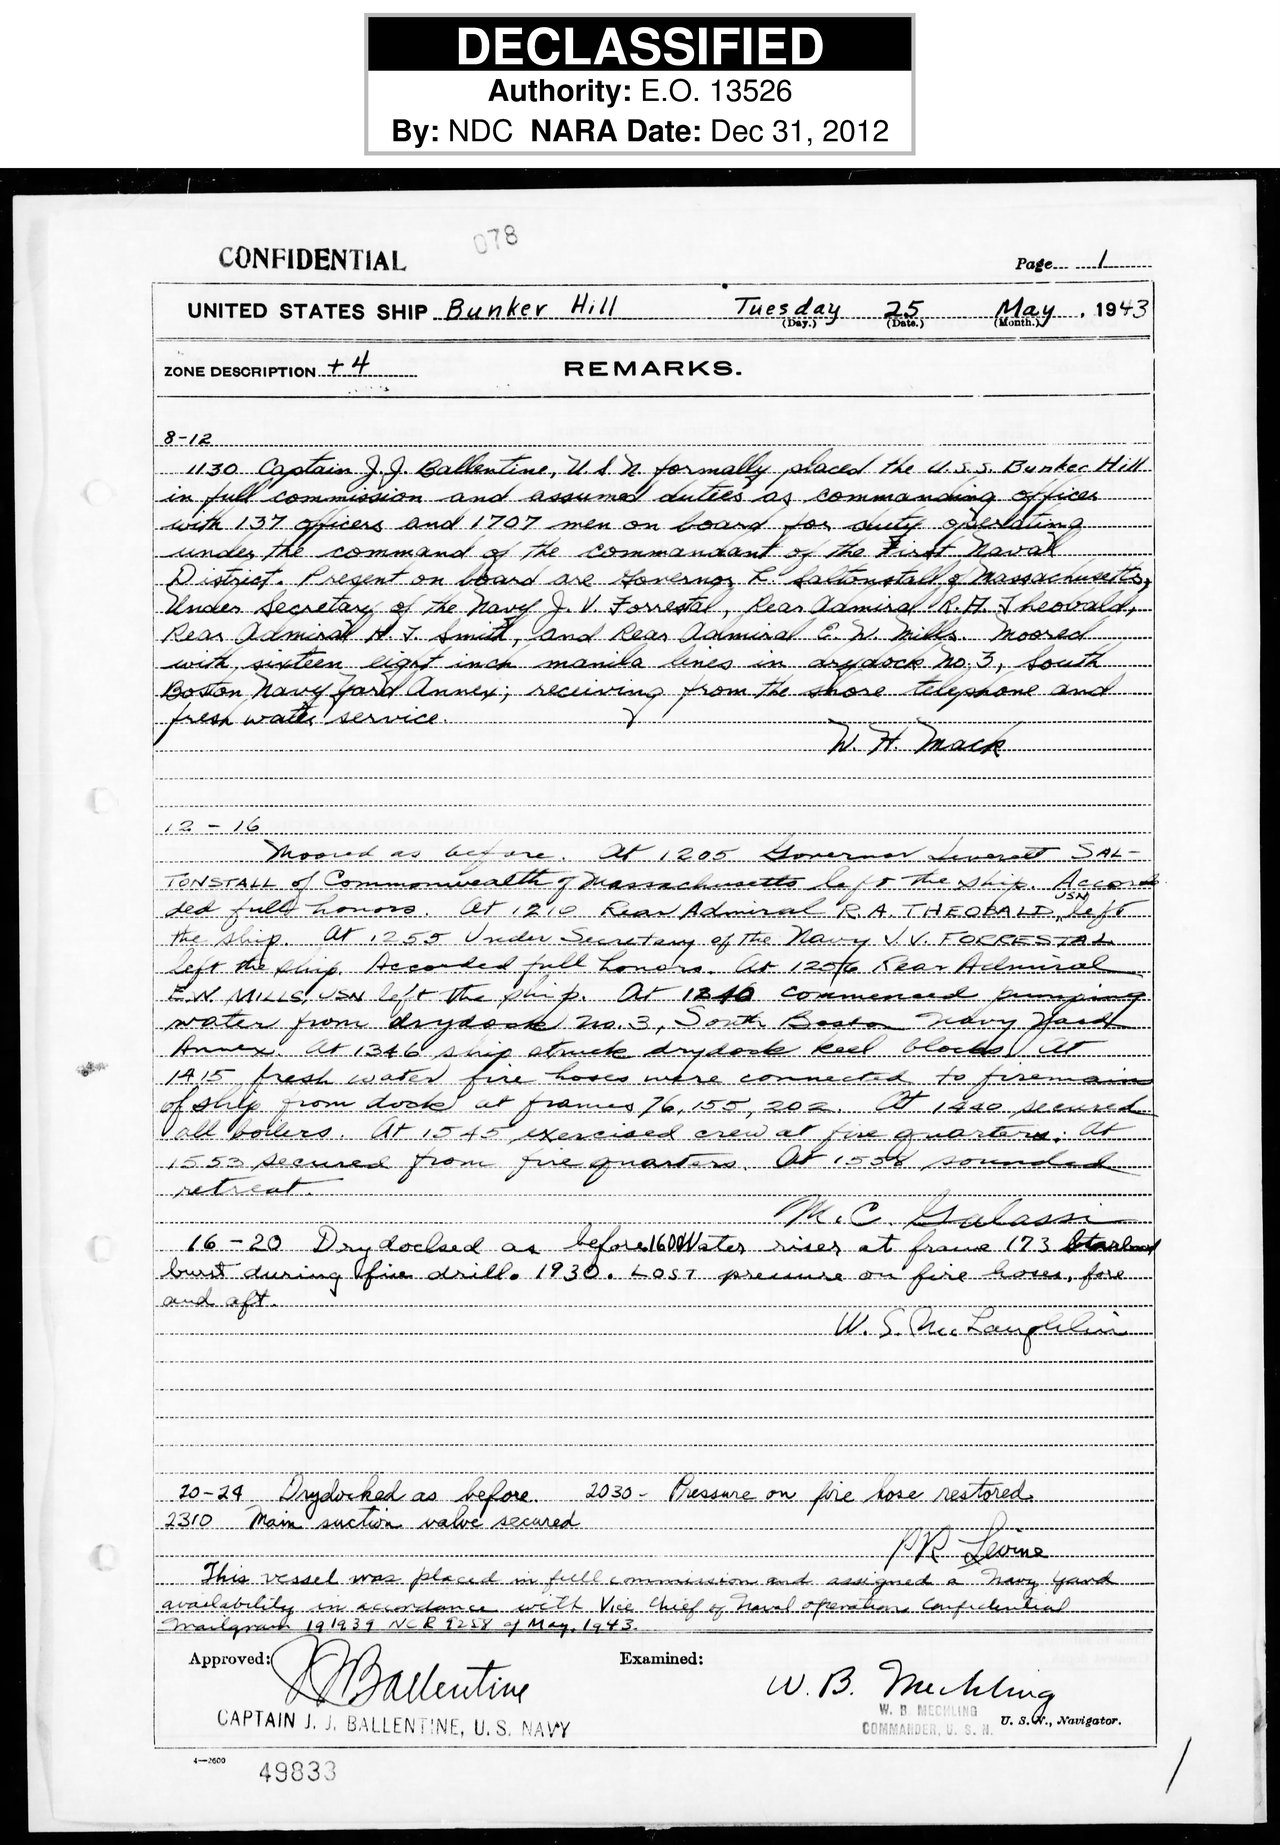 DECLASSIFIED
Authority: E.O. 13526
By: NDC NARA Date: Dec 31, 2012
078
CONFIDENTIAL
Page 1
UNITED STATES SHIP Bunker Hill Tuesday 25 May, 1943
(Day.) (Date.) (Month.)
ZONE DESCRIPTION +4 REMARKS.
8-12
1130 Captain J.J. Ballentine, U.S.N. formally placed the U.S.S. Bunker Hill
in full commission and assumed duties as commanding officer
with 137 officers and 1707 men on board for duty operating
under the command of the commandant of the First Naval
District. Present on board are Governor L. Saltonstall of Massachusetts,
Under Secretary of the Navy J. V. Forrestal, Rear Admiral R. A. Theobald,
Rear Admiral H. T. Smith, and Rear Admiral E. W. Mills. Moored
with sixteen eight inch manila lines in drydock No. 3, South
Boston Navy Yard Annex; receiving from the shore telephone and
fresh water service.
W. H. Mack
12 - 16
Moored as before. At 1205 Governor Leverett SAL-
TONSTALL of Commonwealth of Massachusetts left the ship. Accor-
ded full honors. At 1210 Rear Admiral R.A. THEOBALD, USN left
the ship. At 1255 Under Secretary of the Navy J.V. FORRESTAL
left the ship. Accorded full honors. At 1256 Rear Admiral
E.W. MILLS, USN left the ship. At commenced pumping
water from drydock No. 3, South Boston Navy Yard
Annex. At 1346 ship struck drydock keel blocks. At
1415 fresh water fire hoses were connected to firemain
of ship from dock at frames 76, 155, 202. At 1440 secured
all boilers. At 1545 exercised crew at fire quarters. At
1553 secured from fire quarters. At 1558 sounded
retreat.
M. C. Galassi
16-20 Drydocked as before. 1600 Water riser at frame 173 starboard
burst during fire drill. 1930. LOST pressure on fire hoses, fore
and aft.
W. S. McLaughlin
20-24 Drydocked as before. 2030 - Pressure on fire hose restored.
2310 Main suction valve secured
P R Levine
This vessel was placed in full commission and assigned a Navy Yard
availability in accordance with Vice Chief of Naval Operations Confidential
Mailgram 191939 NCR 9258 of May. 1943.
Approved: JJ Ballentine Examined: W. B. Mechling
CAPTAIN J. J. BALLENTINE, U. S. NAVY
W. B. MECHLING
COMMANDER, U. S. N. U. S. N., Navigator.
4—2600
49833
1